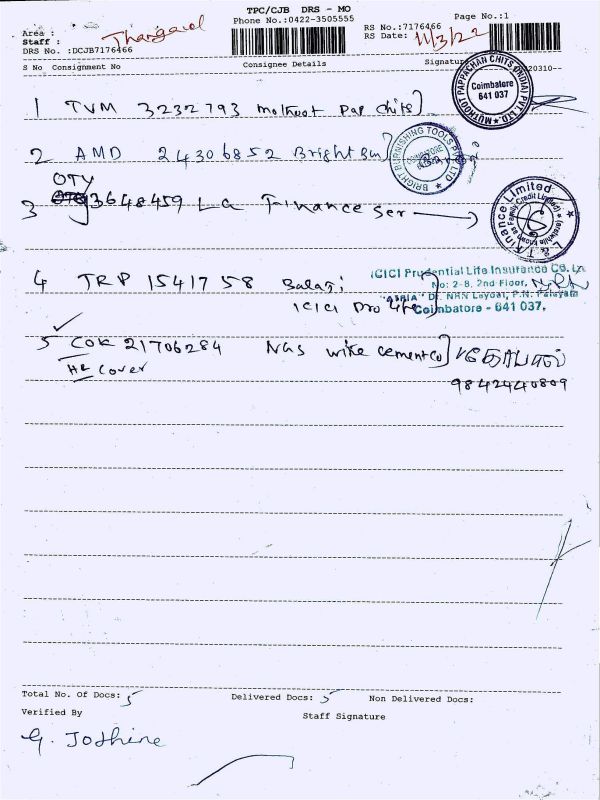 TPC/CJB DRS - MO
Phone No.:0422-3505555
Page No.:1
Area :
Staff :
DRS No. :DCJB7176466
RS No.:7176466
RS Date: 11/3/22
S No Consignment No Consignee Details Signature
1 TVM 3232793 Muthoot Pap chits
MUTHOOT PAPPACHAN CHITS (INDIA) PVT. LTD.
Coimbatore
641 037
2 AMD 24306852 Bright Bun
BRIGHT BURNISHING TOOLS PVT LTD
COIMBATORE
OTY
3 3648459 La Finance Ser
L & T Finance Limited
(erstwhile known as Family Credit Limited)
4 TRP 15417 58 Balaji
ICICI Pro Life
ICICI Prudential Life Insurance Co. Ltd
No: 2-8, 2nd Floor,
"ASRIA" Dr. NRN Layout, P.N. Palayam
Coimbatore - 641 037.
5 COK 21706284 NGS wike cement co
HR Cover
9842440809
Total No. Of Docs: 5 Delivered Docs: 5 Non Delivered Docs:
Verified By Staff Signature
G. Jothine